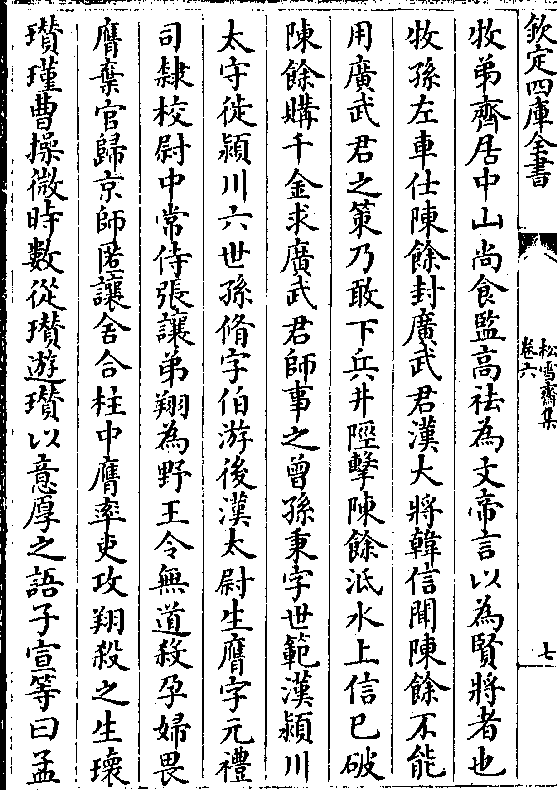 欽定四庫全書
松雪齋集
卷六
七
牧弟齊居中山尚食監高祛為文帝言以為賢將者也
牧孫左車仕陳餘封廣武君漢大將韓信聞陳餘不能
用廣武君之策乃敢下兵井陘擊陳餘泜水上信已破
陳餘購千金求廣武君師事之曾孫秉字世範漢潁川
太守徙潁川六世孫脩字伯游後漢太尉生膺字元禮
司隸校尉中常侍張讓弟翔為野王令無道殺孕婦畏
膺棄官歸京師匿讓舍合柱中膺率吏攻翔殺之生瓌
瓚瑾曹操微時數從瓚遊瓚以意厚之語子宣等曰孟